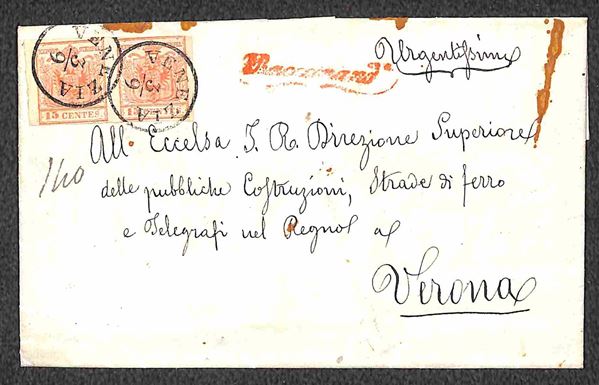 VENEZIA
3/6
VENEZIA
3/6
15 CENTES.
15
Urgentissima
All' Eccelsa I. R. Direzione Superiore
delle pubbliche Costruzioni, Strade di ferro
e Telegrafi nel Regno al
Verona